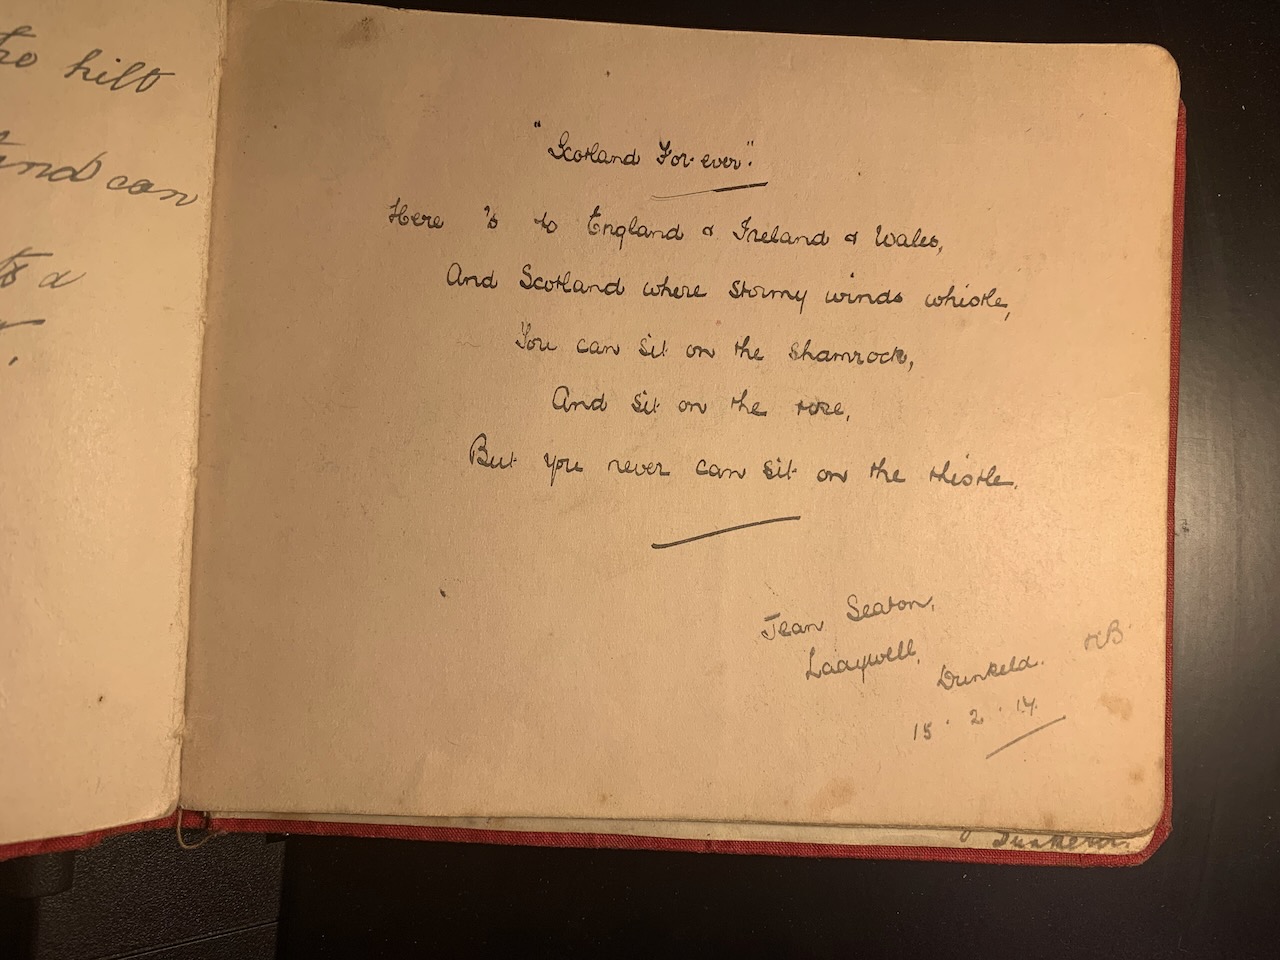 to hilt
and can
to a
"Scotland For-ever."
Here 's to England & Ireland & Wales,
And Scotland where stormy winds whistle,
You can sit on the shamrock,
And sit on the rose,
But you never can sit on the thistle.
Jean Seaton,
Ladywell,
Dunkeld. N.B.
15 . 2 . 14.